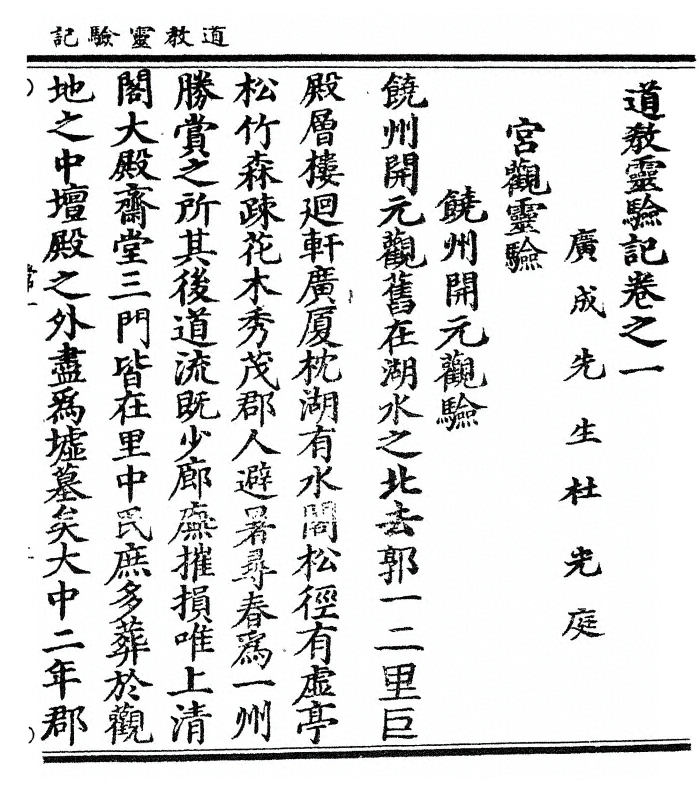 道教靈驗記
道教靈驗記卷之一
廣成先生杜光庭
宮觀靈驗
饒州開元觀驗
饒州開元觀舊在湖水之北去郭一二里巨
殿層樓廻軒廣厦枕湖有水閣松徑有虛亭
松竹森踈花木秀茂郡人避暑尋春爲一州
勝賞之所其後道流旣少廊廡摧損唯上清
閣大殿齋堂三門皆在里中民庶多葬於觀
地之中壇殿之外盡爲墟墓矣大中二年郡